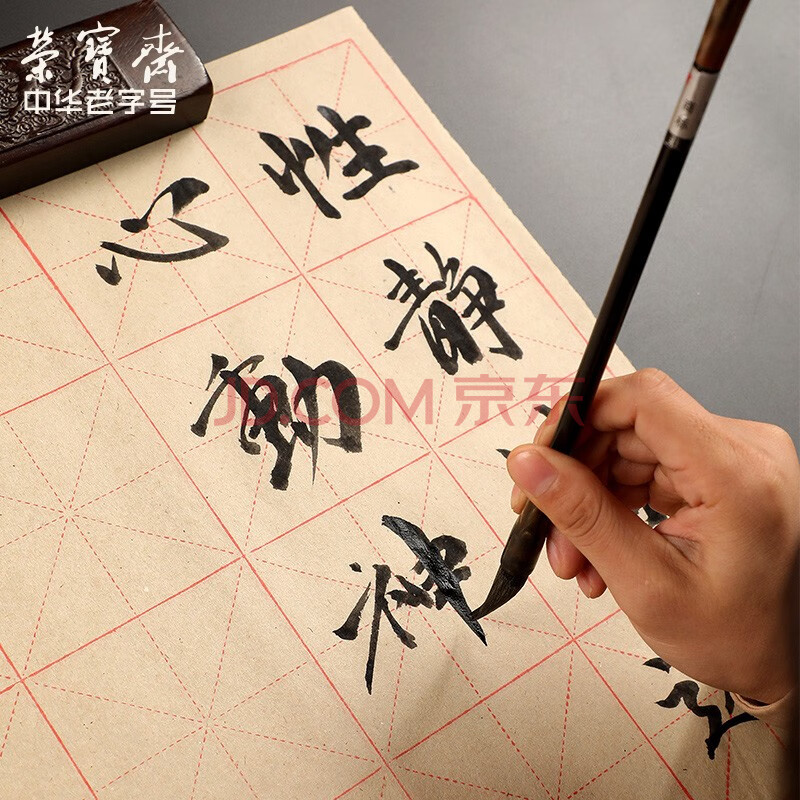 榮寶齋
中华老字号
性静
心動神
JD.COM 京东